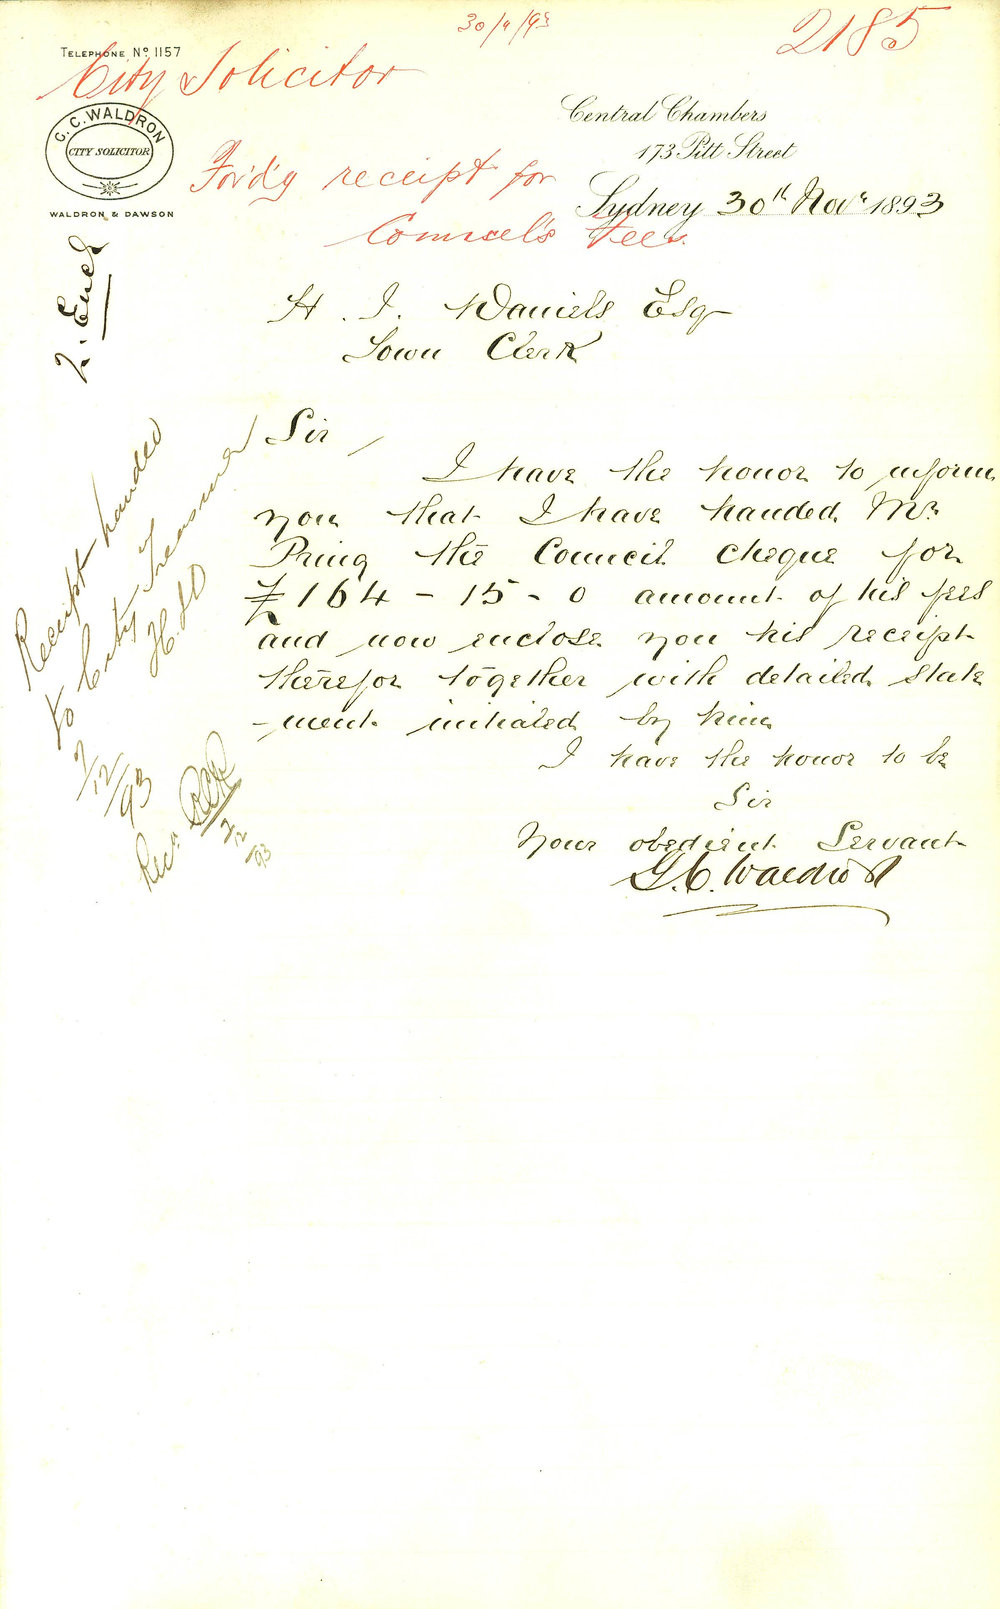 30/11/93
2185
TELEPHONE, No. 1157
City Solicitor
G. C. WALDRON
CITY SOLICITOR
WALDRON & DAWSON
Central Chambers
173 Pitt Street
Sydney 30th Novr 1893
Fordg receipt for
Counsel's Fees.
2. Encl
H. J. Daniels Esq
Town Clerk
Sir,
I have the honor to inform
you that I have handed Mr.
Pring the Council cheque for
£164-15-0 amount of his fees
and now enclose you his receipt
therefor together with detailed state
-ment initialed by him
I have the honor to be
Sir
Your obedient Servant
G. C. Waldron
Receipt handed
to City Treasurer
H.J.D
2/12/93
Recd.
2/12/93